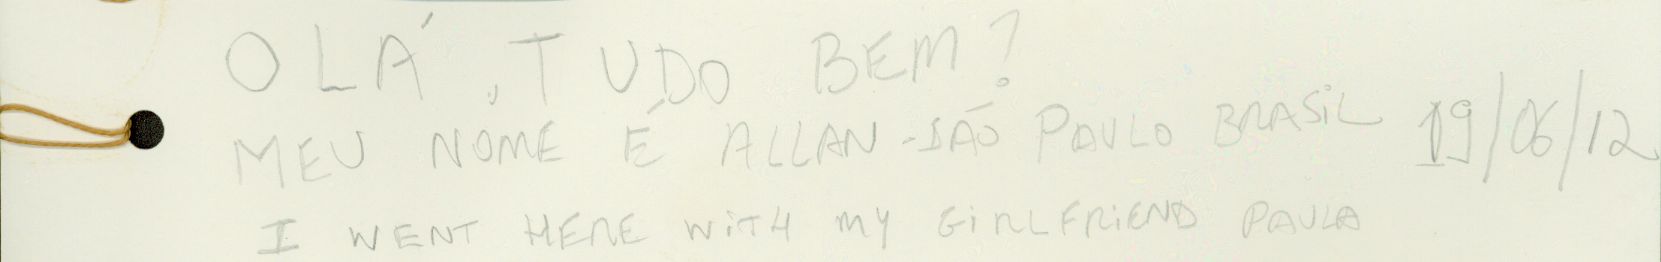 OLÁ, TUDO BEM?
MEU NOME É ALLAN - SÃO PAULO BRASIL 19/06/12
I WENT HERE WITH MY GIRLFRIEND PAULA